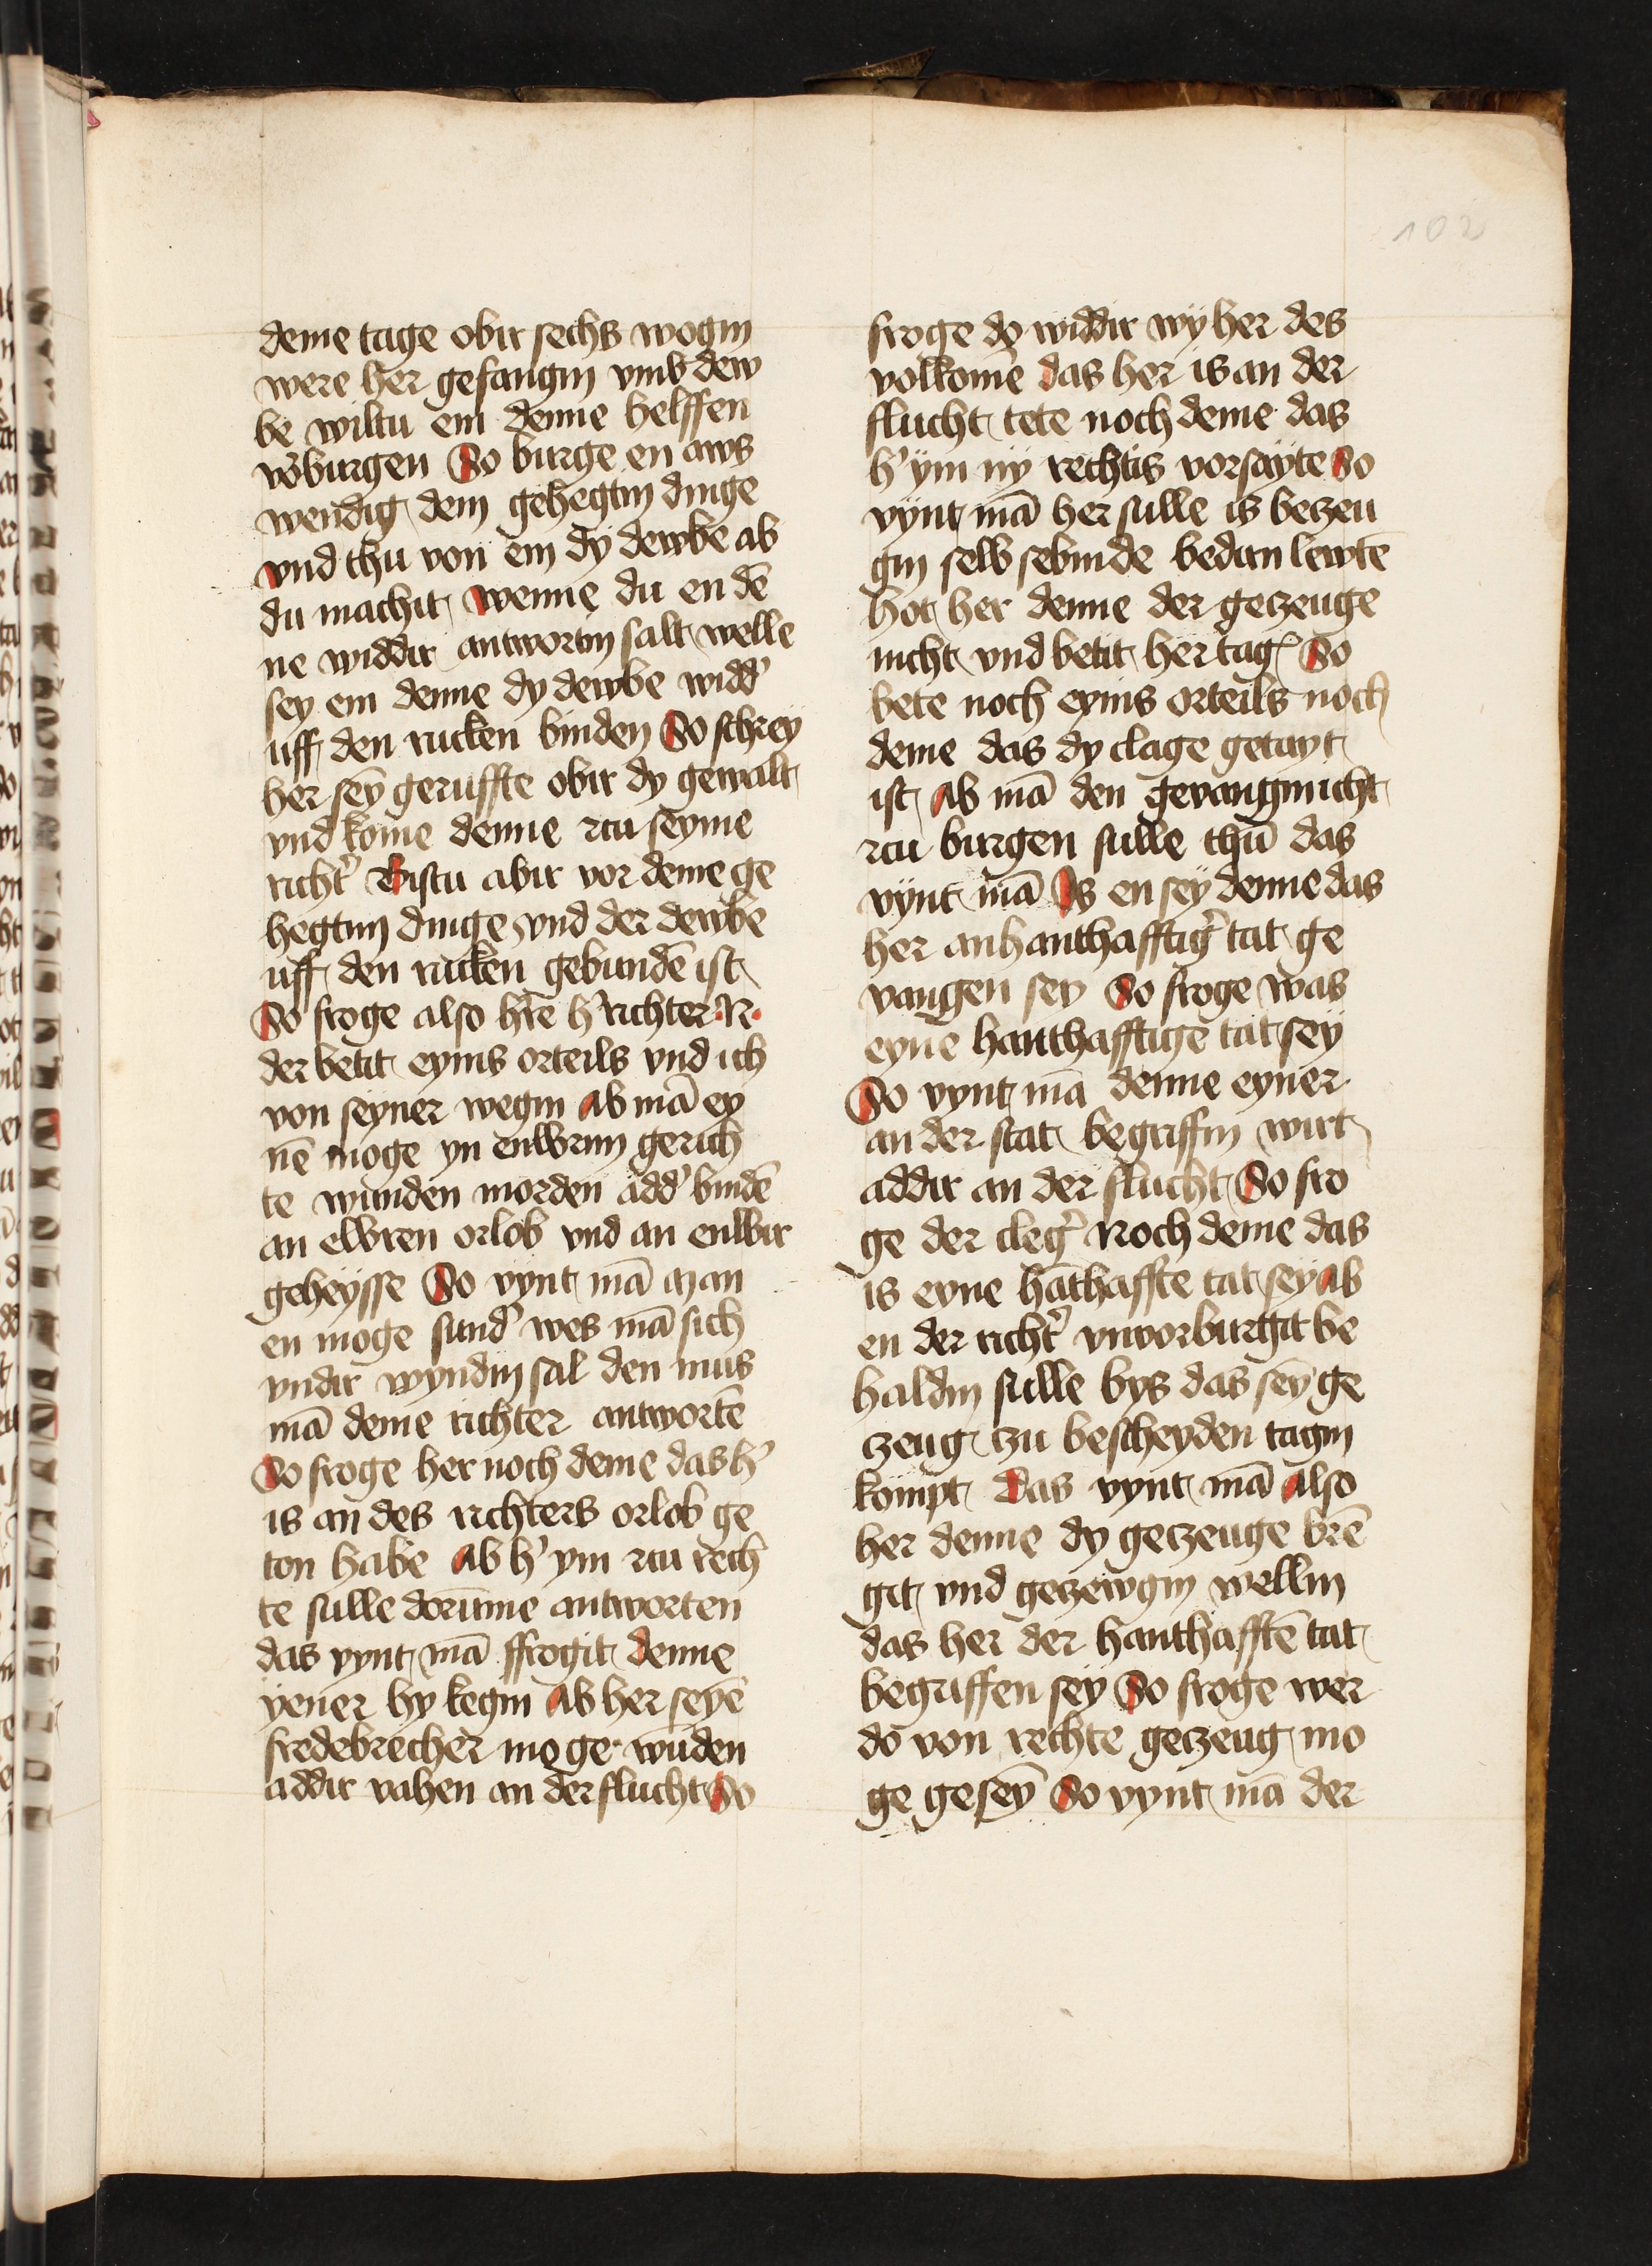 102
deme tage obir sechs wogin
were her gefangin vmb dew
be wiltu em denne helffen
võburgen So burge en aws
wendig dem gehegtin dinge
vnd thu von em dy dewbe ab
du machit wenne du en dē
ne widdir antwortin salt welle
sey em denne dy dewbe widd'
uff den rucken binden So schrey
her sey̅ geruffte obir dy gewalt
vnd kome denne rcu seyme
richt' Bistu abir vor deme ge
hegtim dinge vnd der dewbe
uff den rucken gebundē ist
So froge also h're h' richter ·N·
der betit eynis orteils vnd ich
von seyner wegin Ab mā ey
nē moge yn enwrim gerich
te wunden morden add' bindē
an ewren orlob vnd an enwir
geheysse So vynt mā man
en moge sund' wes mā sich
vndir wyndin sal den mus
mā deme richter antwortē
So froge her noch deme das h'
is an des richters orlob ge
ton habe Ab h' ym rcu rech
te sulle dorūme antworten
das vynt mā ffrogit denne
yener hy kegin Ab her seyē
fredebrecher moge wūden
addir vahen an der flucht So
froge do widdir wy her des
volkome das her is an der
flucht tete noch deme das
h' ym ny rechtis vorsayte So
vynt mā her sulle is beczeu
gin selb sebinde bedan lewte
hot her denne der geczeuge
nicht vnd betit her tag So
bete noch eynis orteils noch
deme das dy clage getayt
ist Ab mā den gevangin icht
rcu burgen sulle thū das
vynt mā Is en sey denne das
her an hanthafftig' tat ge
vangen sey So froge was
eyne hanthafftige tat sey
So vynt mā denne eyner
an der stat begriffin wirt
addir an der flucht So fro
ge der cleg' Noch deme das
is eyne hāthaffte tat sey Ab
en der richt' vnvorburgit be
haldin sulle bys das sey̅ ge
czeug czu bescheyden tagin
kompt das vynt mā Also
her denne dy geczeuge brē
git vnd geczewgin wellin
das her der hanthafftē tat
begriffen sey So froge wer
do von rechte geczeug mo
ge gesey̅ So vynt mā der